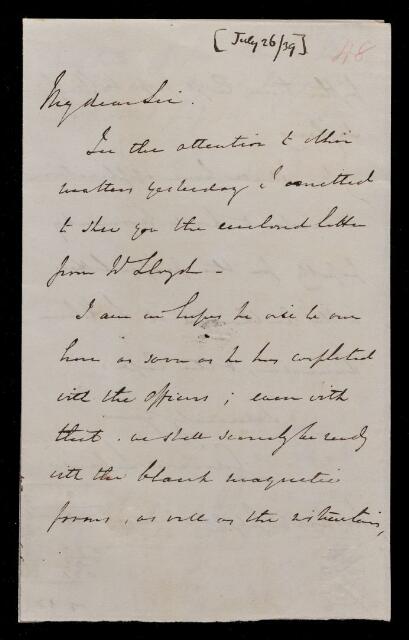 [July 26/39]
48
My dear Sir.
In the attention to other
matters yesterday I omitted
to shew you the enclosed letter
from Mr Lloyd –
I am in hopes he will be
here as soon as he has completed
with the officers ; even with
that . we shall scarcely be ready
with the blank magnetic
forms , as well as the instructions,